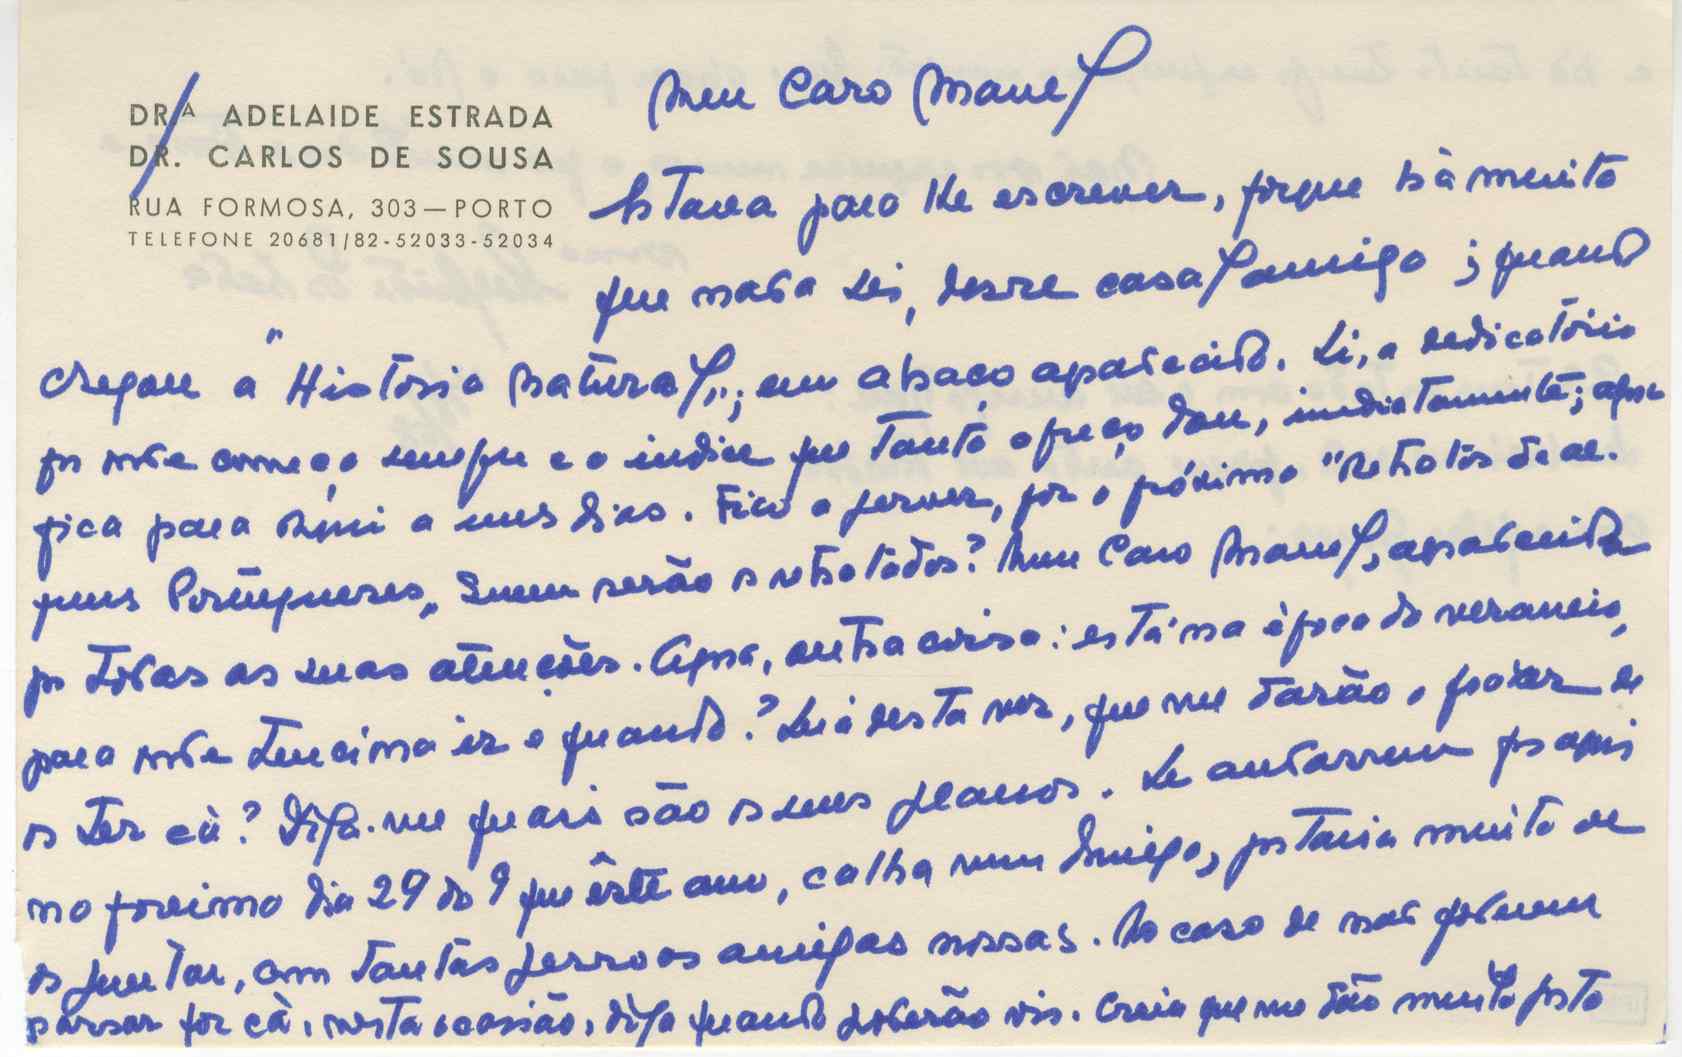 DR.ª ADELAIDE ESTRADA
DR. CARLOS DE SOUSA
RUA FORMOSA, 303—PORTO
TELEFONE 20681/82-52033-52034
Meu Caro Manel
Estava para lhe escrever, porque há muito
que nada sei, desse casal amigo; quando
chegou a "História Natural"; um abraço agradecido. Li, a dedicatória
por onde começo sempre e o indice que tanto apreço dou, imediatamente; agora
fica para mim a uns dias. Fico a ferver, por o próximo "Retratos de al-
guns Portugueses" Quem serão os retratados? Meu Caro Manel, agradecida
por todas as suas atenções. Agora, outra coisa: está na época do veraneio,
para onde tenciona ir e quando? Será desta vez, que me darão o prazer de
os ter cá? Diga-me quais são os seus planos. Se andarem por aqui
no proximo dia 29 do 9 que êste ano, calha num Domingo, gostaria muito de
os juntar, com tantas pessoas amigas nossas. No caso de não poderem
passar por cá, nesta ocasião, diga quando poderão vir. Creia que me dão muito gosto